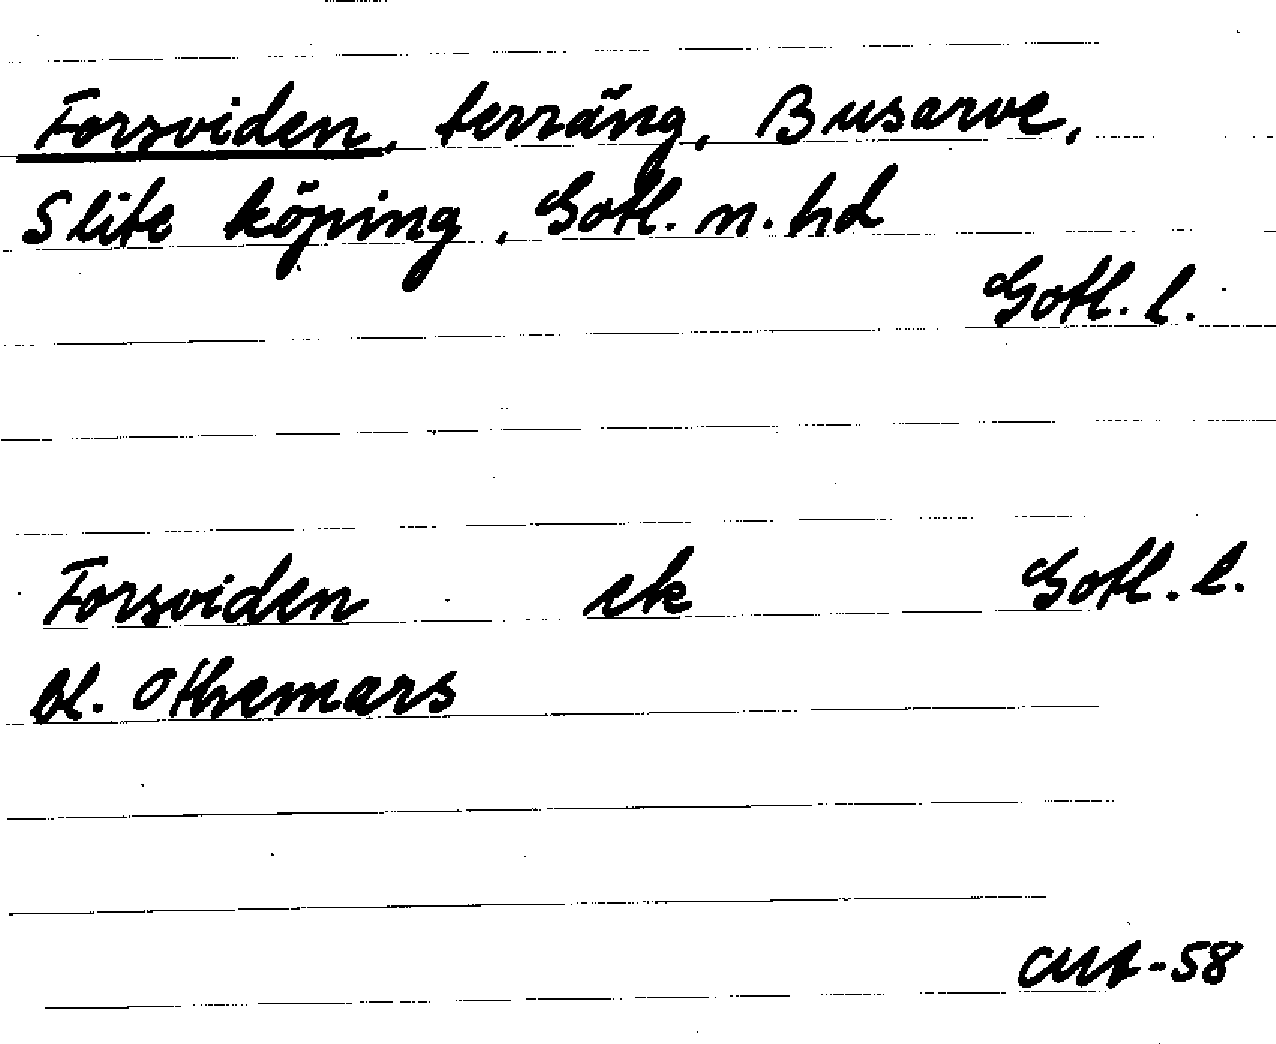 Forsviden, terräng, Busarve,
Slite köping, Gotl. n. hd
Gotl. l.
Forsviden ek Gotl. l.
bl. Othemars
-58